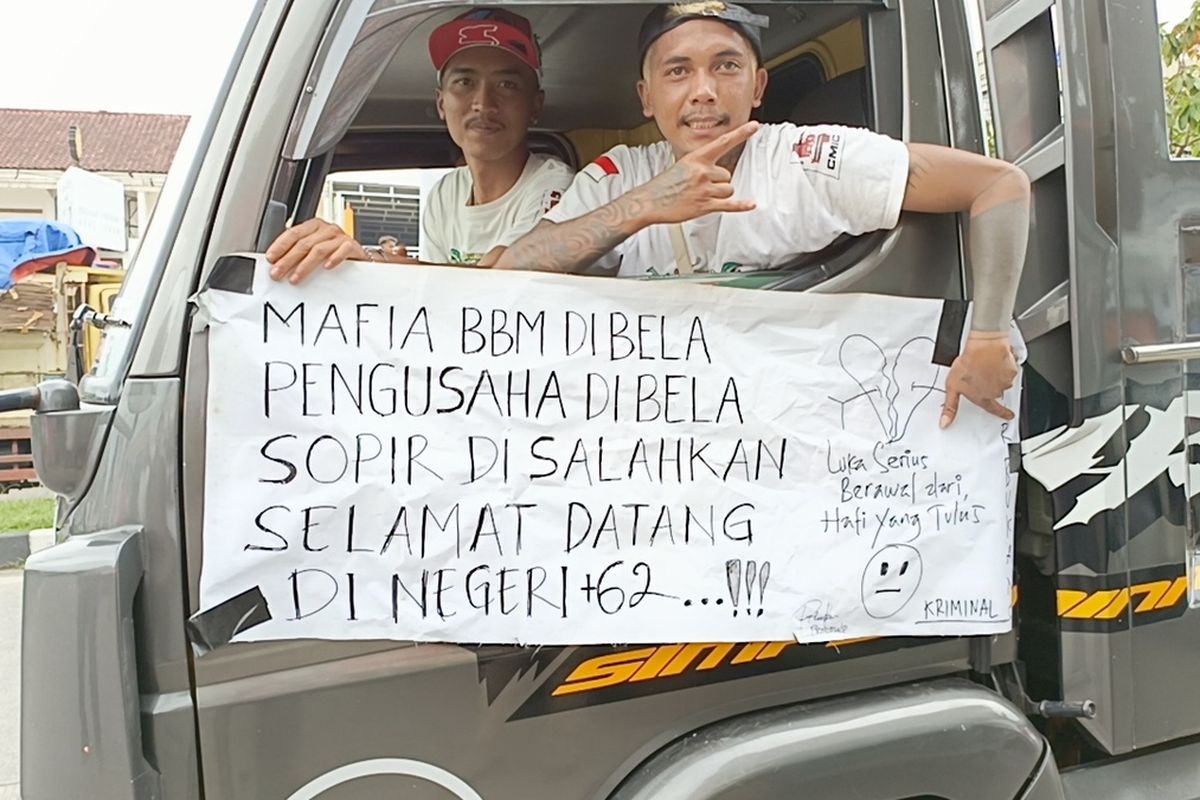 MAFIA BBM DIBELA
PENGUSAHA DIBELA
SOPIR DISALAHKAN
SELAMAT DATANG
DI NEGERI +62 ...!!!
Luka Serius
Berawal dari,
Hati Yang Tulus
KRIMINAL
CMIC